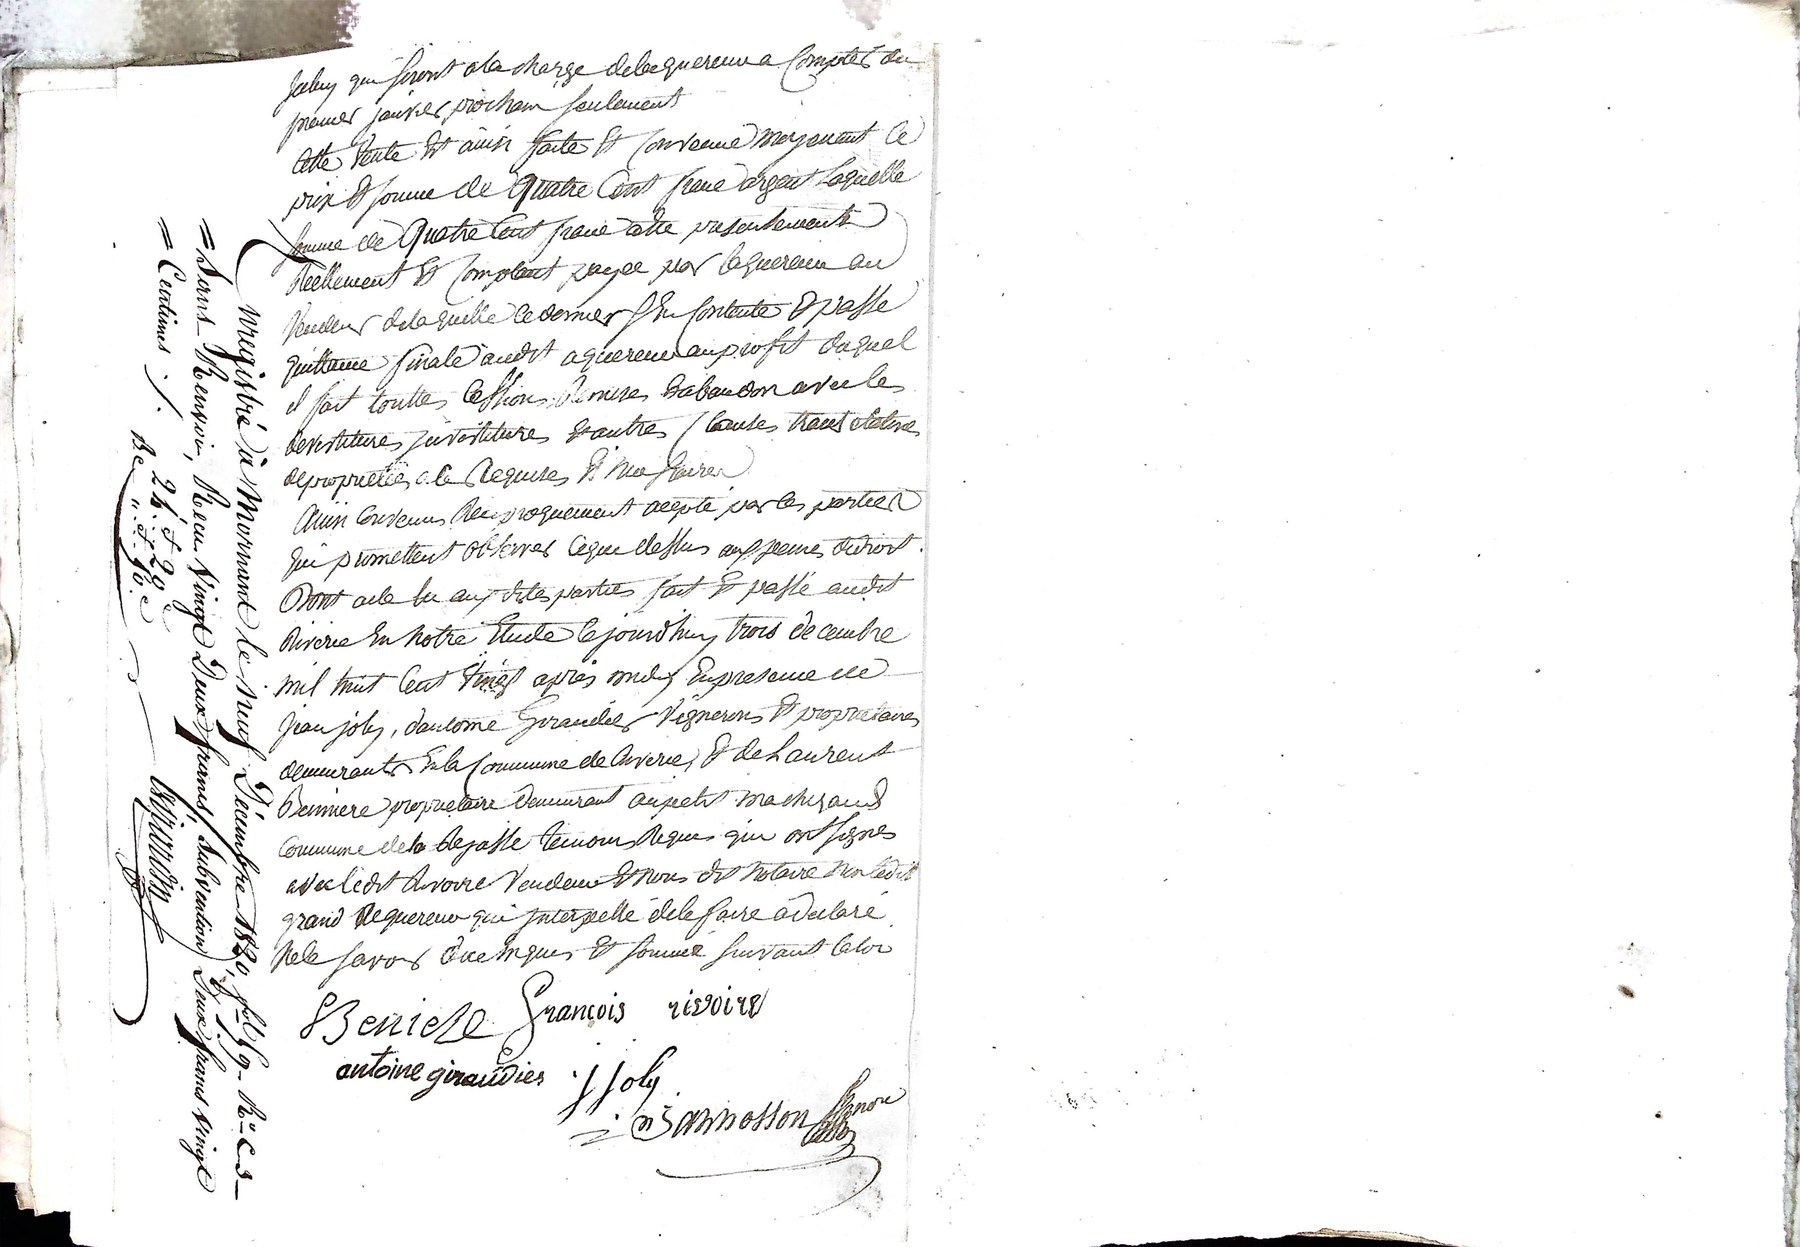 qui seront a la charge de laquereur a Compter du
premier janvier prochain seulement
Cette Vente Est ainsi faite Et Convenue moyenant Le
prix Et somme de Quatre Cent franc argent Laquelle
somme de Quatre Cent franc a été presentement
Reellement Et Comptant payee par laquereur au
Vendeur de laquelle ce dernier sen Contente Et passe
quittance finale audit aquereur au profit duquel
il fait touttes Cessions Remises Et abandon avec les
devestitures jnvestitures Et autres Clauses translatives
de proprietés a ce Requises Et necessaires
Ainsi Convenu Reciproquement accepté par les parties
qui promettent observer ce que dessus aux peines de droit.
Dont acte lu aux dites parties fait Et passé audit
Riverie En notre Etude Cejourdhuy trois decembre
mil huit Cent Vingt après midy En presence de
jean joly, dantoine Giraudier Vignerons Et proprietaires
demeurants En la Commune de Riverie, Et de Laurent
Beiniere proprietaire demeurant au petit
Commune de la Rajasse temoins Requis qui ont signés
avec ledit Rivoire Vendeur Et nous dit Notaire non ledit
grand aquereur qui jnterpellé de le faire a declaré
ne le savoir de ce Enquis Et sommé suivant la loi
Beniere françois rivoire
antoine giraudier j joly
Bannosson
Enregistré à Mornant le neuf Décembre 1820, fol. 59. Ro. C. 5
= Sans Renvoi, Recu Vingt Deux francs, Subvention Deux francs vingt
= Centimes /. 24f. et 20c.